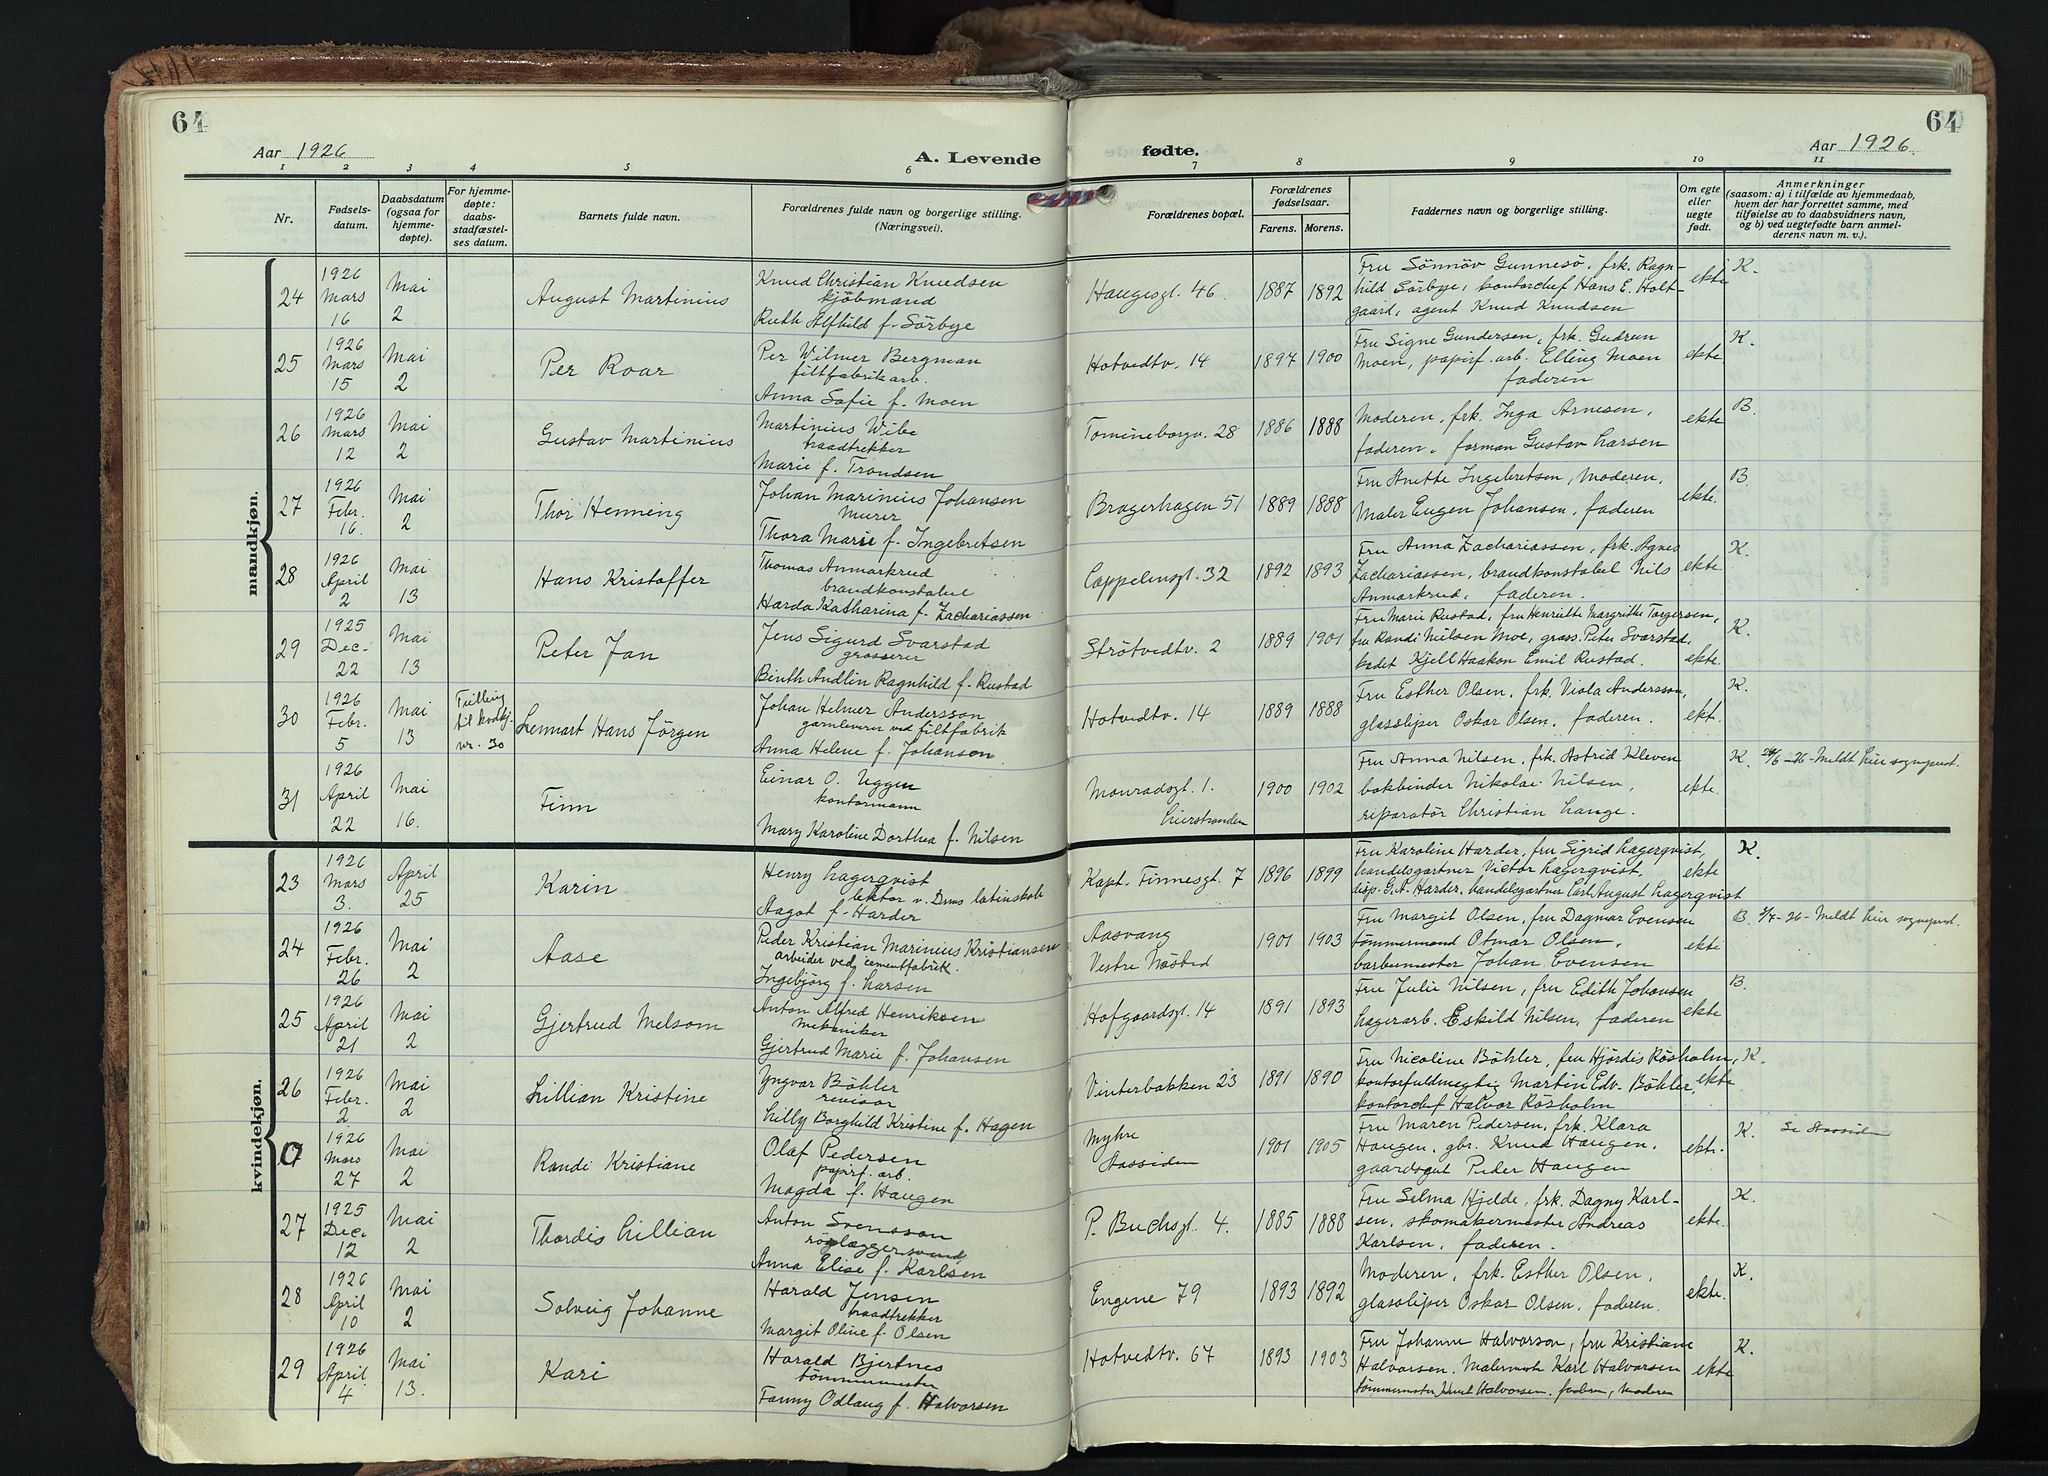 64
64
Aar 1926
A. Levende
fødte.
Aar 1926.
1 2 3 4 5 6 7 8 9 10 11
Nr.
Fødsels-
datum.
Daabsdatum
(ogsaa for
hjemme-
døpte).
For hjemme-
døpte:
daabs-
stadfæstel-
ses datum.
Barnets fulde navn.
Forældrenes fulde navn og borgerlige stilling.
(Næringsvei).
Forældrenes bopæl.
Forældrenes
fødselsaar.
Farens. Morens.
Faddernes navn og borgerlige stilling.
Om egte
eller
uegte
født.
Anmerkninger
(saasom: a) i tilfælde av hjemmedaab,
hvem der har forrettet samme, med
tilføielse av to daabsvidners navn,
og b) ved uegtefødte barn anmel-
derens navn m. v.).
mandkjøn.
24
1926
Mars
16
Mai
2
August Martinius
Knud Christian Knudsen
kjöbmand
Ruth Alfhild f. Sörbye
Haugesgt. 46.
1887 1892
Fru Sönnöv Gunnesö, frk. Ragn-
hild Sörbye, kontorchef Hans E. Holt-
gaard, agent Knud Knudsen
ekte
K.
25
1926
Mars
15
Mai
2
Per Roar
Per Wilmer Bergman
filtfabrikarb.
Anna Sofie f. Moen
Hotvedtv. 14
1897 1900
Fru Signe Gundersen, frk. Gudrun
Moen, papirf. arb. Elling Moen
faderen
ekte
K.
26
1926
Mars
12
Mai
2
Gustav Martinius
Martinius Wibe
traadtrekker
Marie f. Trondsen
Tomineborgv. 28
1886 1888
Moderen, frk. Inga Arnesen,
faderen, forman Gustav Larsen
ekte
B.
27
1926
Febr.
16.
Mai
2
Thor Henning
Johan Marinius Johansen
Murer
Thora Marie f. Ingebretsen
Bragerhagen 51
1889 1888
Fru Anette Ingebretsen, moderen,
Maler Eugen Johansen, faderen
ekte.
B.
28
1926
April
2
Mai
13
Hans Kristoffer
Thomas Anmarkrud
brandkonstabel
Harda Katharina f. Zachariassen
Cappelensgt. 32
1892 1893
Fru Anna Zachariassen, frk. Agnes
Zachariassen, brandkonstabel Nils
Anmarkrud, faderen.
ekte.
K.
29
1925
Dec.
22
Mai
13
Peter Jan
Jens Sigurd Svarstad
grosserer
Binth Andlin Ragnhild f. Rustad
Strötvedtv. 2
1889 1901
Fru Marie Rustad, fru Henriette Margrithe Torgersen,
fru Randi Nilsen Moe, gross. Peter Svarstad,
kadet Kjell Haakon Emil Rustad.
ekte.
K.
30
1926
Febr.
5
Mai
13
Tvilling
til kvakj.
nr. 30
Lennart Hans Jörgen
Johan Helmer Andersson
garnleverer ved filtfabrik
Anna Helene f. Johanson.
Hotvedtv. 14
1889 1888
Fru Esther Olsen, frk. Viola Andersson,
glassliper Oskar Olsen, faderen.
ekt.
K.
31
1926
April
22
Mai
16.
Finn
Einar O. Uggen
kontormann
Mary Karoline Dorthea f. Nilsen
Monradsgt. 1.
Lierstranden
1900 1902
Fru Anna Nilsen, frk. Astrid Kleven
bokbinder Nikolai Nilsen,
reparatør Christian Lange.
ekte.
K. 24/6-26 - Meldt Lier sognepest.
kvindekjøn.
23
1926
Mars
3.
April
25
Karin
Henry Lagerqvist
lektor v. Drms latinskole
Aagot f. Harder
Kapt. Finnesgt. 7
1896 1899
Fru Karoline Harder, fru Sigrid Lagerqvist,
handelsgartner Victor Lagerqvist,
disp. G. A. Harder, handelsgartner Carl August Lagerqvist
ekte
K.
24
1926
Febr.
26
Mai
2
Aase
Peder Kristian Marinius Kristiansen
arbeider ved cementfabrik.
Ingebjörg f. Larsen
Aasvang
Vestre Nøsted
1901 1903
Fru Margit Olsen, fru Dagmar Evensen
tömmermand Otmar Olsen,
barbermester Johan Evensen
ekte
B 3/7-26 - Meldt Lier sognepest.
25
1926
April
21
Mai
2
Gjertrud Melsom
Anton Alfred Henriksen
mekaniker
Gjertrud Marie f. Johansen
Hofgaardsgt. 14
1891 1893
Fru Julie Nilsen, fru Edith Johansen
Lagerarb. Eskild Nilsen, faderen
ekte
B.
26
1926
Febr.
2
Mai
2
Lillian Kristine
Yngvar Böhler
revisor
Lilly Borghild Kristine f. Hagen
Vinterbakken 23
1891 1890
Fru Nicoline Böhler, fru Hjördis Rösholm,
kontorfuldmegtig Martin Edv. Böhler,
kontorchef Halvor Rösholm
ekte
K.
0
1926
Mars
27
Mai
2
Randi Kristiane
Olaf Pedersen
papirf. arb.
Magda f. Haugen
Myhre
Aassiden
1901 1905
Fru Maren Pedersen, frk. Klara
Haugen, gbr. Knud Haugen,
gaardsgut Peder Haugen
ekte.
K. Se Aassiden
27
1925
Dec.
12
Mai
2
Thordis Lillian
Anton Svensson
rørlæggersvend
Anna Elise f. Karlsen
P. Buchsgt. 4.
1885 1888
Fru Selma Hjelde, frk. Dagny Karl-
sen, skomakermester Andreas
Karlsen, faderen.
ekte.
K.
28
1926
April
10
Mai
2
Solveig Johanne
Harald Jensen
traadtrekker
Margit Oline f. Olsen
Engene 79
1893 1892
Moderen, frk. Esther Olsen,
glassliper Oskar Olsen, faderen.
ekte.
K.
29
1926
April
4
Mai
13.
Kari
Harald Bjertnes
tömmermester
Fanny Odlaug f. Halvorsen
Hotvedtv. 67
1893 1903
Fru Johanne Halvorson, fru Kristiane
Halvorsen, Malermest. Karl Halvorsen
tömmermester Knut Halvorsen, faderen, moderen
ekte
K.